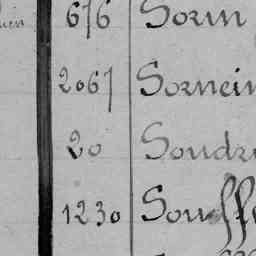 676 Sorin
2067 Sornein
20 Soudre
1230 Souff